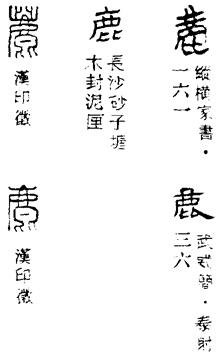 鹿
縱橫家書·
一六一
鹿
長沙砂子塘
木封泥匣
鹿
漢印徵
鹿
武威簡·泰射
三六
鹿
漢印徵